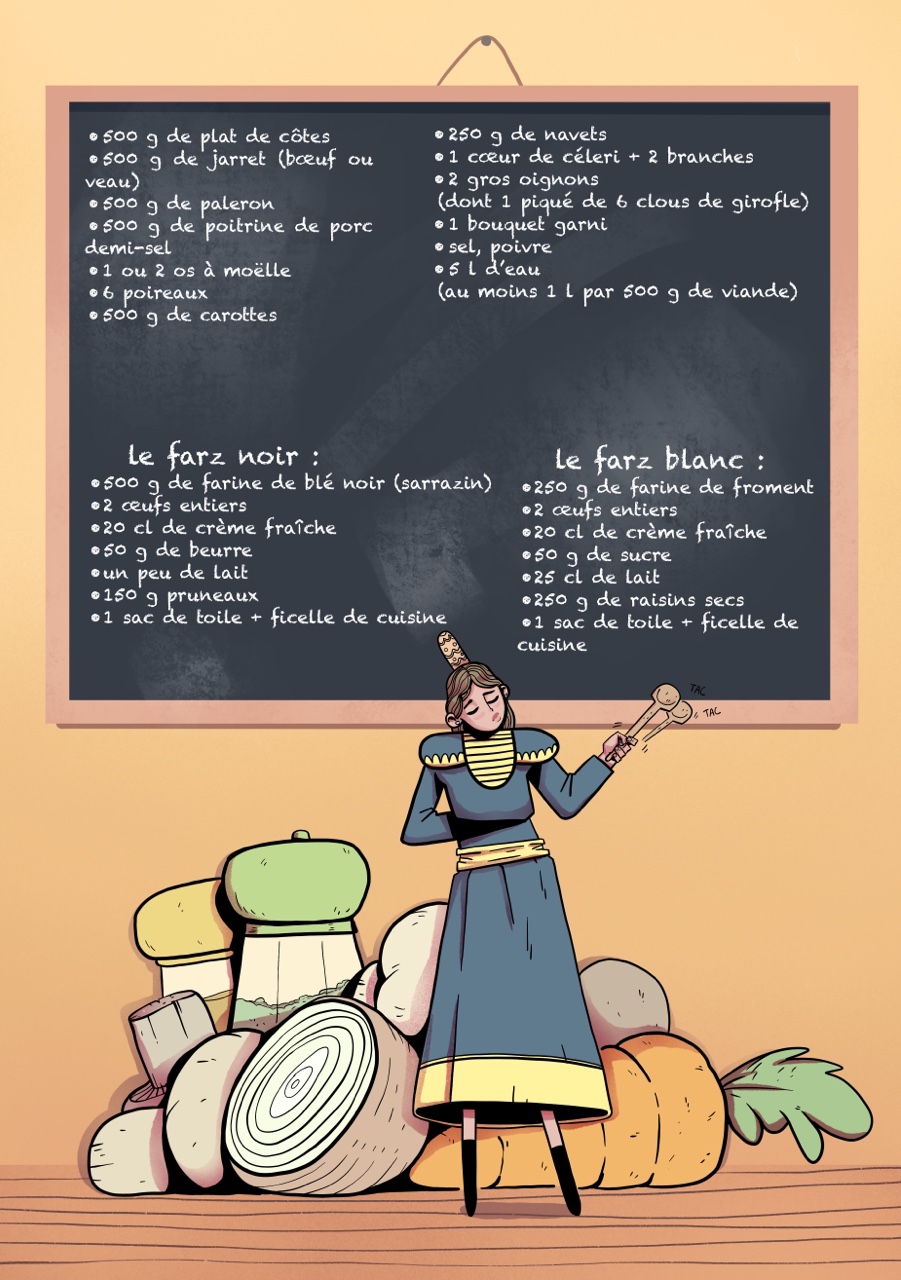 •500 g de plat de côtes
•500 g de jarret (bœuf ou
veau)
•500 g de paleron
•500 g de poitrine de porc
demi-sel
•1 ou 2 os à moëlle
•6 poireaux
•500 g de carottes
•250 g de navets
•1 cœur de céleri + 2 branches
•2 gros oignons
(dont 1 piqué de 6 clous de girofle)
•1 bouquet garni
•sel, poivre
•5 l d'eau
(au moins 1 l par 500 g de viande)
le farz noir :
•500 g de farine de blé noir (sarrazin)
•2 œufs entiers
•20 cl de crème fraîche
•50 g de beurre
•un peu de lait
•150 g pruneaux
•1 sac de toile + ficelle de cuisine
le farz blanc :
•250 g de farine de froment
•2 œufs entiers
•20 cl de crème fraîche
•50 g de sucre
•25 cl de lait
•250 g de raisins secs
•1 sac de toile + ficelle de
cuisine
TAC
TAC